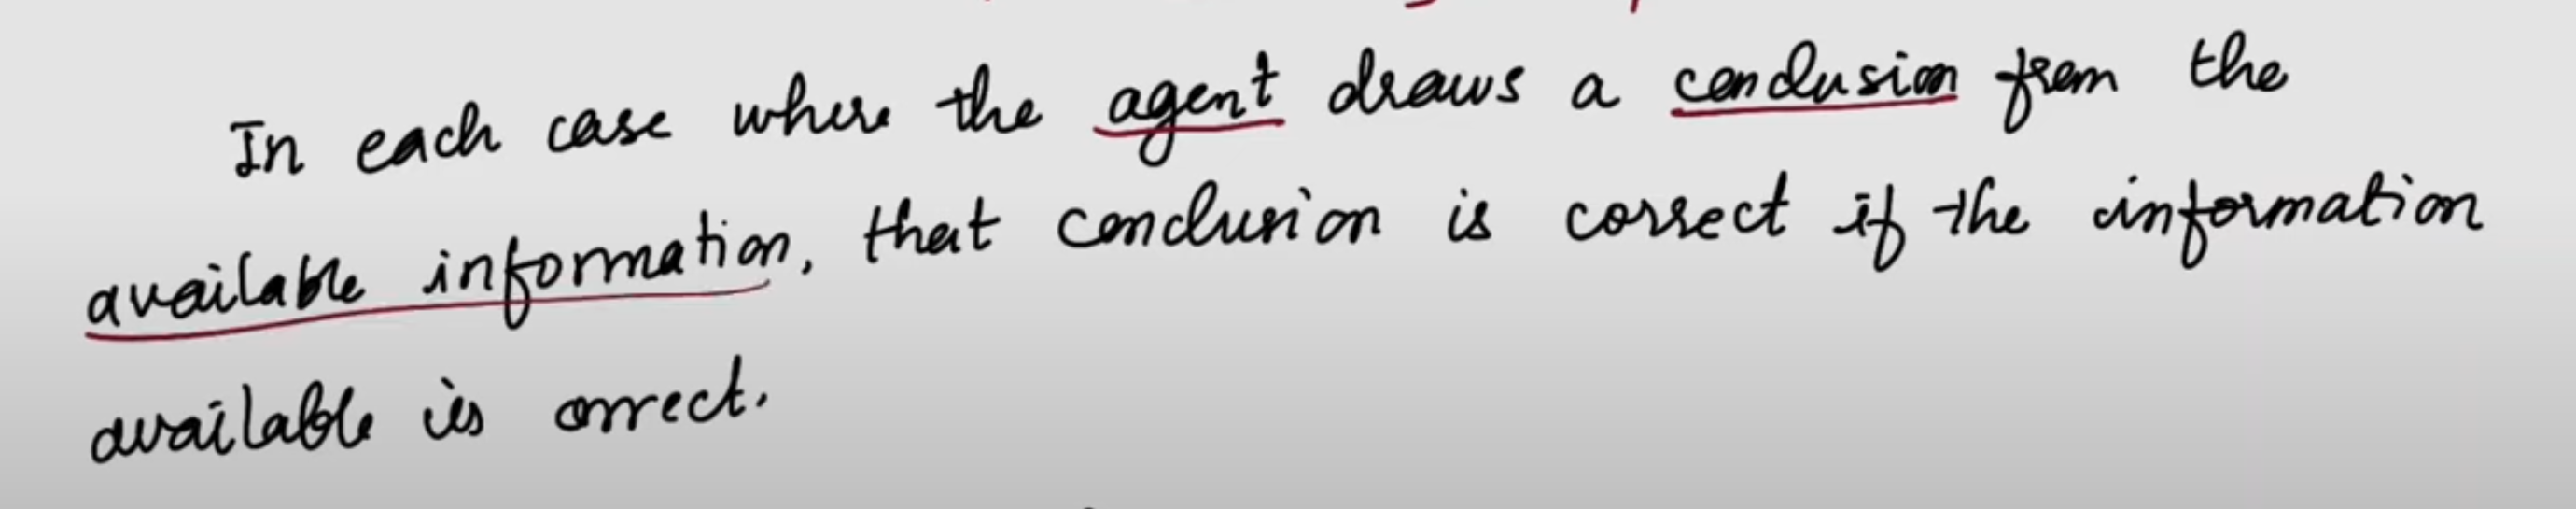 In each case where the agent draws a conclusion from the
available information, that conclusion is correct if the information
available is correct.